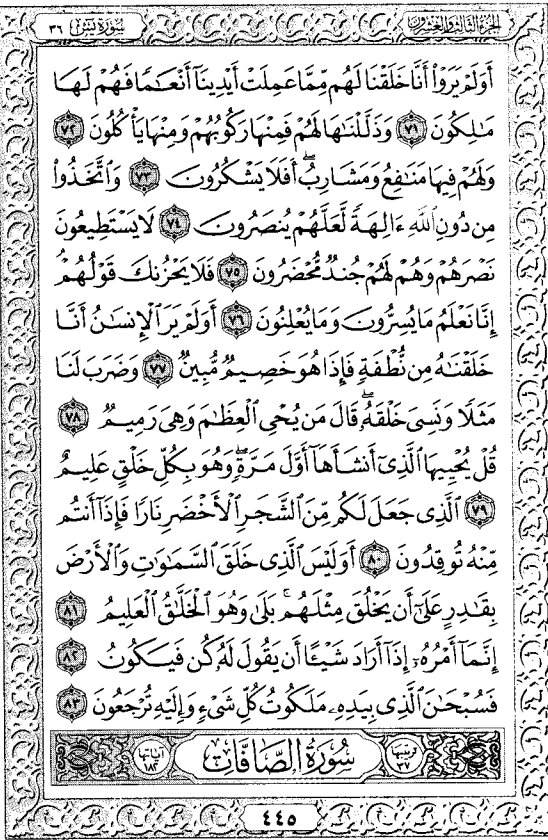 الجزء الثالث والعشرون سورة يس ٣٦
أَوَلَمْ يَرَوْا۟ أَنَّا خَلَقْنَا لَهُم مِّمَّا عَمِلَتْ أَيْدِينَآ أَنْعَـٰمًا فَهُمْ لَهَا
مَـٰلِكُونَ ٧١ وَذَلَّلْنَـٰهَا لَهُمْ فَمِنْهَا رَكُوبُهُمْ وَمِنْهَا يَأْكُلُونَ ٧٢
وَلَهُمْ فِيهَا مَنَـٰفِعُ وَمَشَارِبُ ۖ أَفَلَا يَشْكُرُونَ ٧٣ وَٱتَّخَذُوا۟
مِن دُونِ ٱللَّهِ ءَالِهَةً لَّعَلَّهُمْ يُنصَرُونَ ٧٤ لَا يَسْتَطِيعُونَ
نَصْرَهُمْ وَهُمْ لَهُمْ جُندٌ مُّحْضَرُونَ ٧٥ فَلَا يَحْزُنكَ قَوْلُهُمْ ۘ
إِنَّا نَعْلَمُ مَا يُسِرُّونَ وَمَا يُعْلِنُونَ ٧٦ أَوَلَمْ يَرَ ٱلْإِنسَـٰنُ أَنَّا
خَلَقْنَـٰهُ مِن نُّطْفَةٍ فَإِذَا هُوَ خَصِيمٌ مُّبِينٌ ٧٧ وَضَرَبَ لَنَا
مَثَلًا وَنَسِىَ خَلْقَهُۥ ۖ قَالَ مَن يُحْىِ ٱلْعِظَـٰمَ وَهِىَ رَمِيمٌ ٧٨
قُلْ يُحْيِيهَا ٱلَّذِىٓ أَنشَأَهَآ أَوَّلَ مَرَّةٍ ۖ وَهُوَ بِكُلِّ خَلْقٍ عَلِيمٌ
٧٩ ٱلَّذِى جَعَلَ لَكُم مِّنَ ٱلشَّجَرِ ٱلْأَخْضَرِ نَارًا فَإِذَآ أَنتُم
مِّنْهُ تُوقِدُونَ ٨٠ أَوَلَيْسَ ٱلَّذِى خَلَقَ ٱلسَّمَـٰوَٰتِ وَٱلْأَرْضَ
بِقَـٰدِرٍ عَلَىٰٓ أَن يَخْلُقَ مِثْلَهُم ۚ بَلَىٰ وَهُوَ ٱلْخَلَّـٰقُ ٱلْعَلِيمُ ٨١
إِنَّمَآ أَمْرُهُۥٓ إِذَآ أَرَادَ شَيْـًٔا أَن يَقُولَ لَهُۥ كُن فَيَكُونُ ٨٢
فَسُبْحَـٰنَ ٱلَّذِى بِيَدِهِۦ مَلَكُوتُ كُلِّ شَىْءٍ وَإِلَيْهِ تُرْجَعُونَ ٨٣
ترتيبها ٣٧ سُورَةُ الصَّافَّاتِ آياتها ١٨٢
٤٤٥